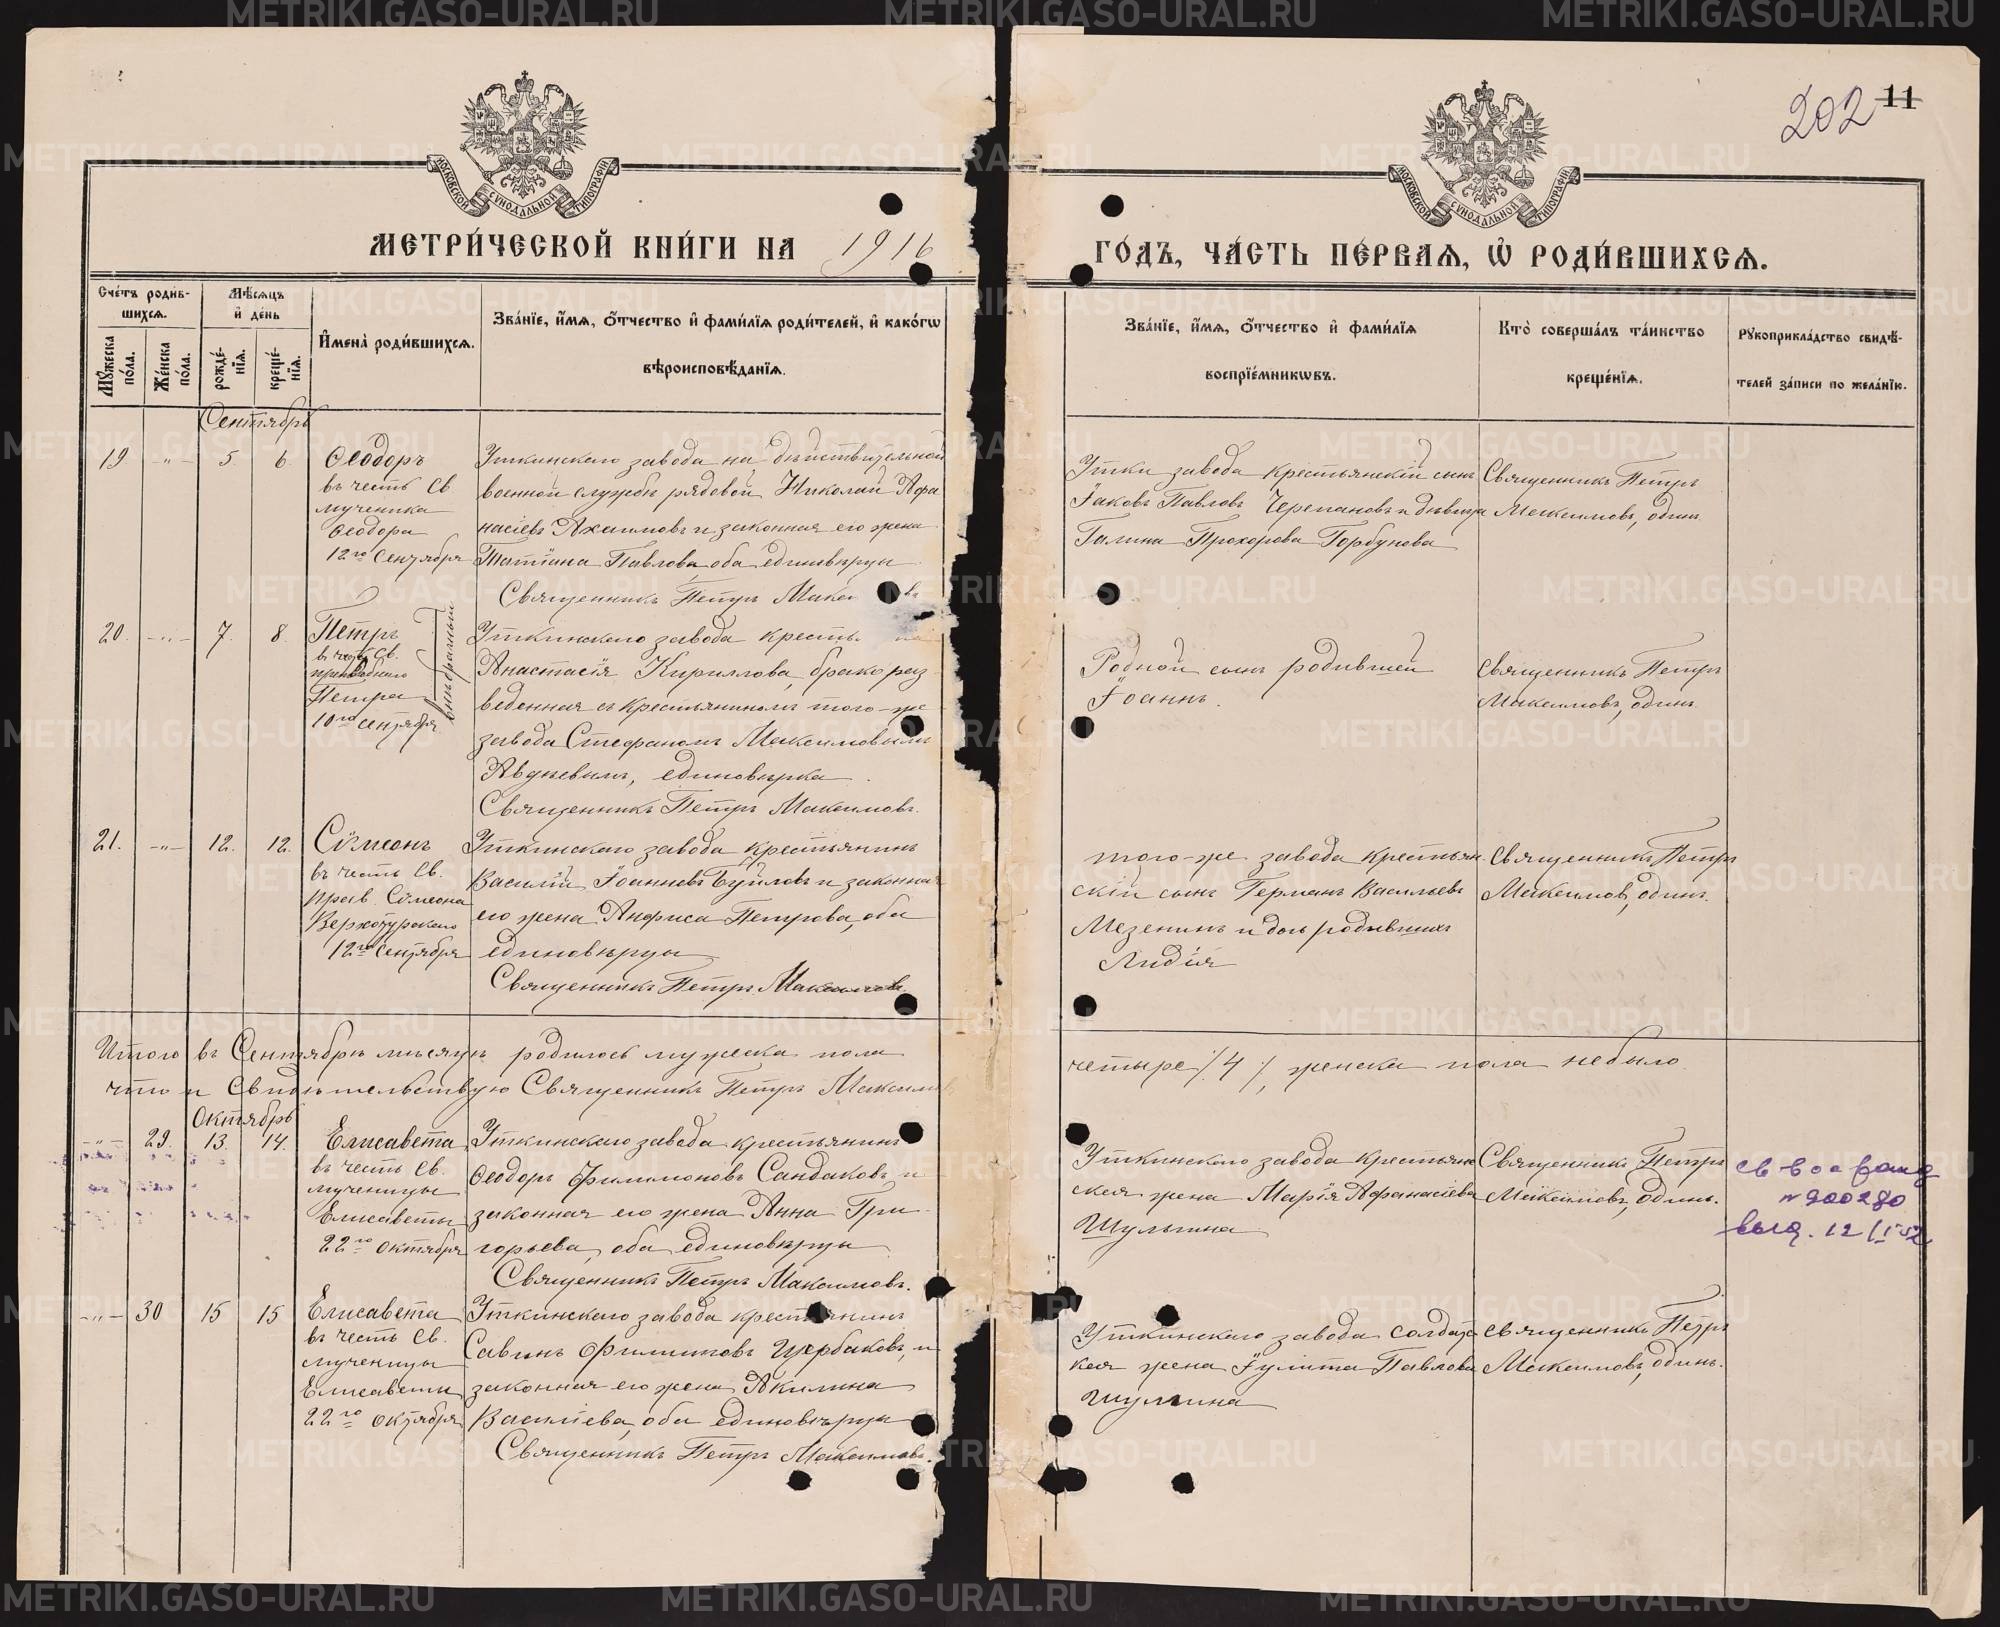 202 11
МОСКОВСКОЙ СУНОДАЛЬНОЙ ТИПОГРАФІИ
МОСКОВСКОЙ СУНОДАЛЬНОЙ ТИПОГРАФІИ
МЕТРИ́ЧЕСКОЙ КНИ́ГИ НА 1916
ГО́ДЪ, ЧА́СТЬ ПЕ́РВАѦ, Ѡ҆ РОДИ́ВШИХСѦ.
Сче́тъ роди́в-
шихсѧ.
Мѣ́сѧцъ
и҆ де́нь
И҆мена̀ роди́вшихсѧ.
Зва́нїе, и҆́мѧ, ѻ҆́тчество и҆ фами́лїѧ роди́телей, и҆ како́гѡ
вѣроисповѣ́данїѧ.
Мꙋ́жеска
по́ла.
Же́нска
по́ла.
рожде́-
нїѧ.
креще́-
нїѧ.
Зва́нїе, и҆́мѧ, ѻ҆́тчество и҆ фами́лїѧ
воспрїе́мникѡвъ.
Кто̀ соверша́лъ та́инство
креще́нїѧ.
Рꙋкоприкла́дство свидѣ́-
телей за́писи по жела́нїю.
Сентябрь
19 -"- 5 6
Ѳеодоръ
въ честь Св.
мученика
Ѳеодора
12го Сентября
Уткинскаго завода на дѣйствительной
военной службѣ рядовой Николай Афа
насіевъ Ахаимовъ и законная его жена
Татіана Павлова, оба единовѣрцы
Священникъ Петръ
Утки завода крестьянскій сынъ
Іаковъ Павловъ Черепановъ и дѣвица
Галина Прохорова Горбунова
Священникъ Петръ
Максимовъ, одинъ.
20. -"- 7. 8.
Петръ
въ честь Св.
преподобнаго
Петра
10го сентября
внѣбрачный
Уткинскаго завода кресть
Анастасія Кириллова, бракораз
веденная съ крестьяниномъ того-же
завода Стефаномъ Максимовымъ
Авдѣевымъ, единовѣрка
Священникъ Петръ Максимовъ.
Родной сынъ родившей
Іоаннъ.
Священникъ Петръ
Максимовъ, одинъ.
21. -"- 12. 12.
Сѵмеонъ
въ честь Св.
прав. Сѵмеона
Верхотурскаго
12го Сентября
Уткинскаго завода крестьянинъ
Василій Іоанновъ Буйловъ и законная
его жена Анфиса Петрова, оба
единовѣрцы
Священникъ Петръ Максимовъ.
того-же завода крестьян
скій сынъ Германъ Васильевъ
Мезенинъ и дочь родившихъ
Лидія
Священникъ Петръ
Максимовъ, одинъ.
Итого въ Сентябрѣ мѣсяцѣ родилось мужеска пола
четыре /4/, женска пола небыло.
что и Свидѣтельствую Священникъ Петръ Максимов
Октябрь
-"- 29. 13. 14.
Елисавета
въ честь Св.
мученицы
Елисаветы
22го октября
Уткинскаго завода крестьянинъ
Ѳеодоръ Филимоновъ Сандаковъ и
законная его жена Анна Гри
горьева, оба единовѣрцы
Священникъ Петръ Максимовъ.
Уткинскаго завода крестьянс
кая жена Марія Афанасіева
Шульгина
Священникъ Петръ
Максимовъ, одинъ.
св-во
№900280
выд. 12/I 52
-"- 30 15 15
Елисавета
въ честь Св.
мученицы
Елисаветы
22го октября
Уткинскаго завода крестьянинъ
Савинъ Филиповъ Щербаковъ, и
законная его жена Акилина
Василіева, оба единовѣрцы
Священникъ Петръ Максимовъ.
Уткинскаго завода солдатс
кая жена Іулита Павлова
Шулгина
Священникъ Петръ
Максимовъ, одинъ.
METRIKI.GASO-URAL.RU